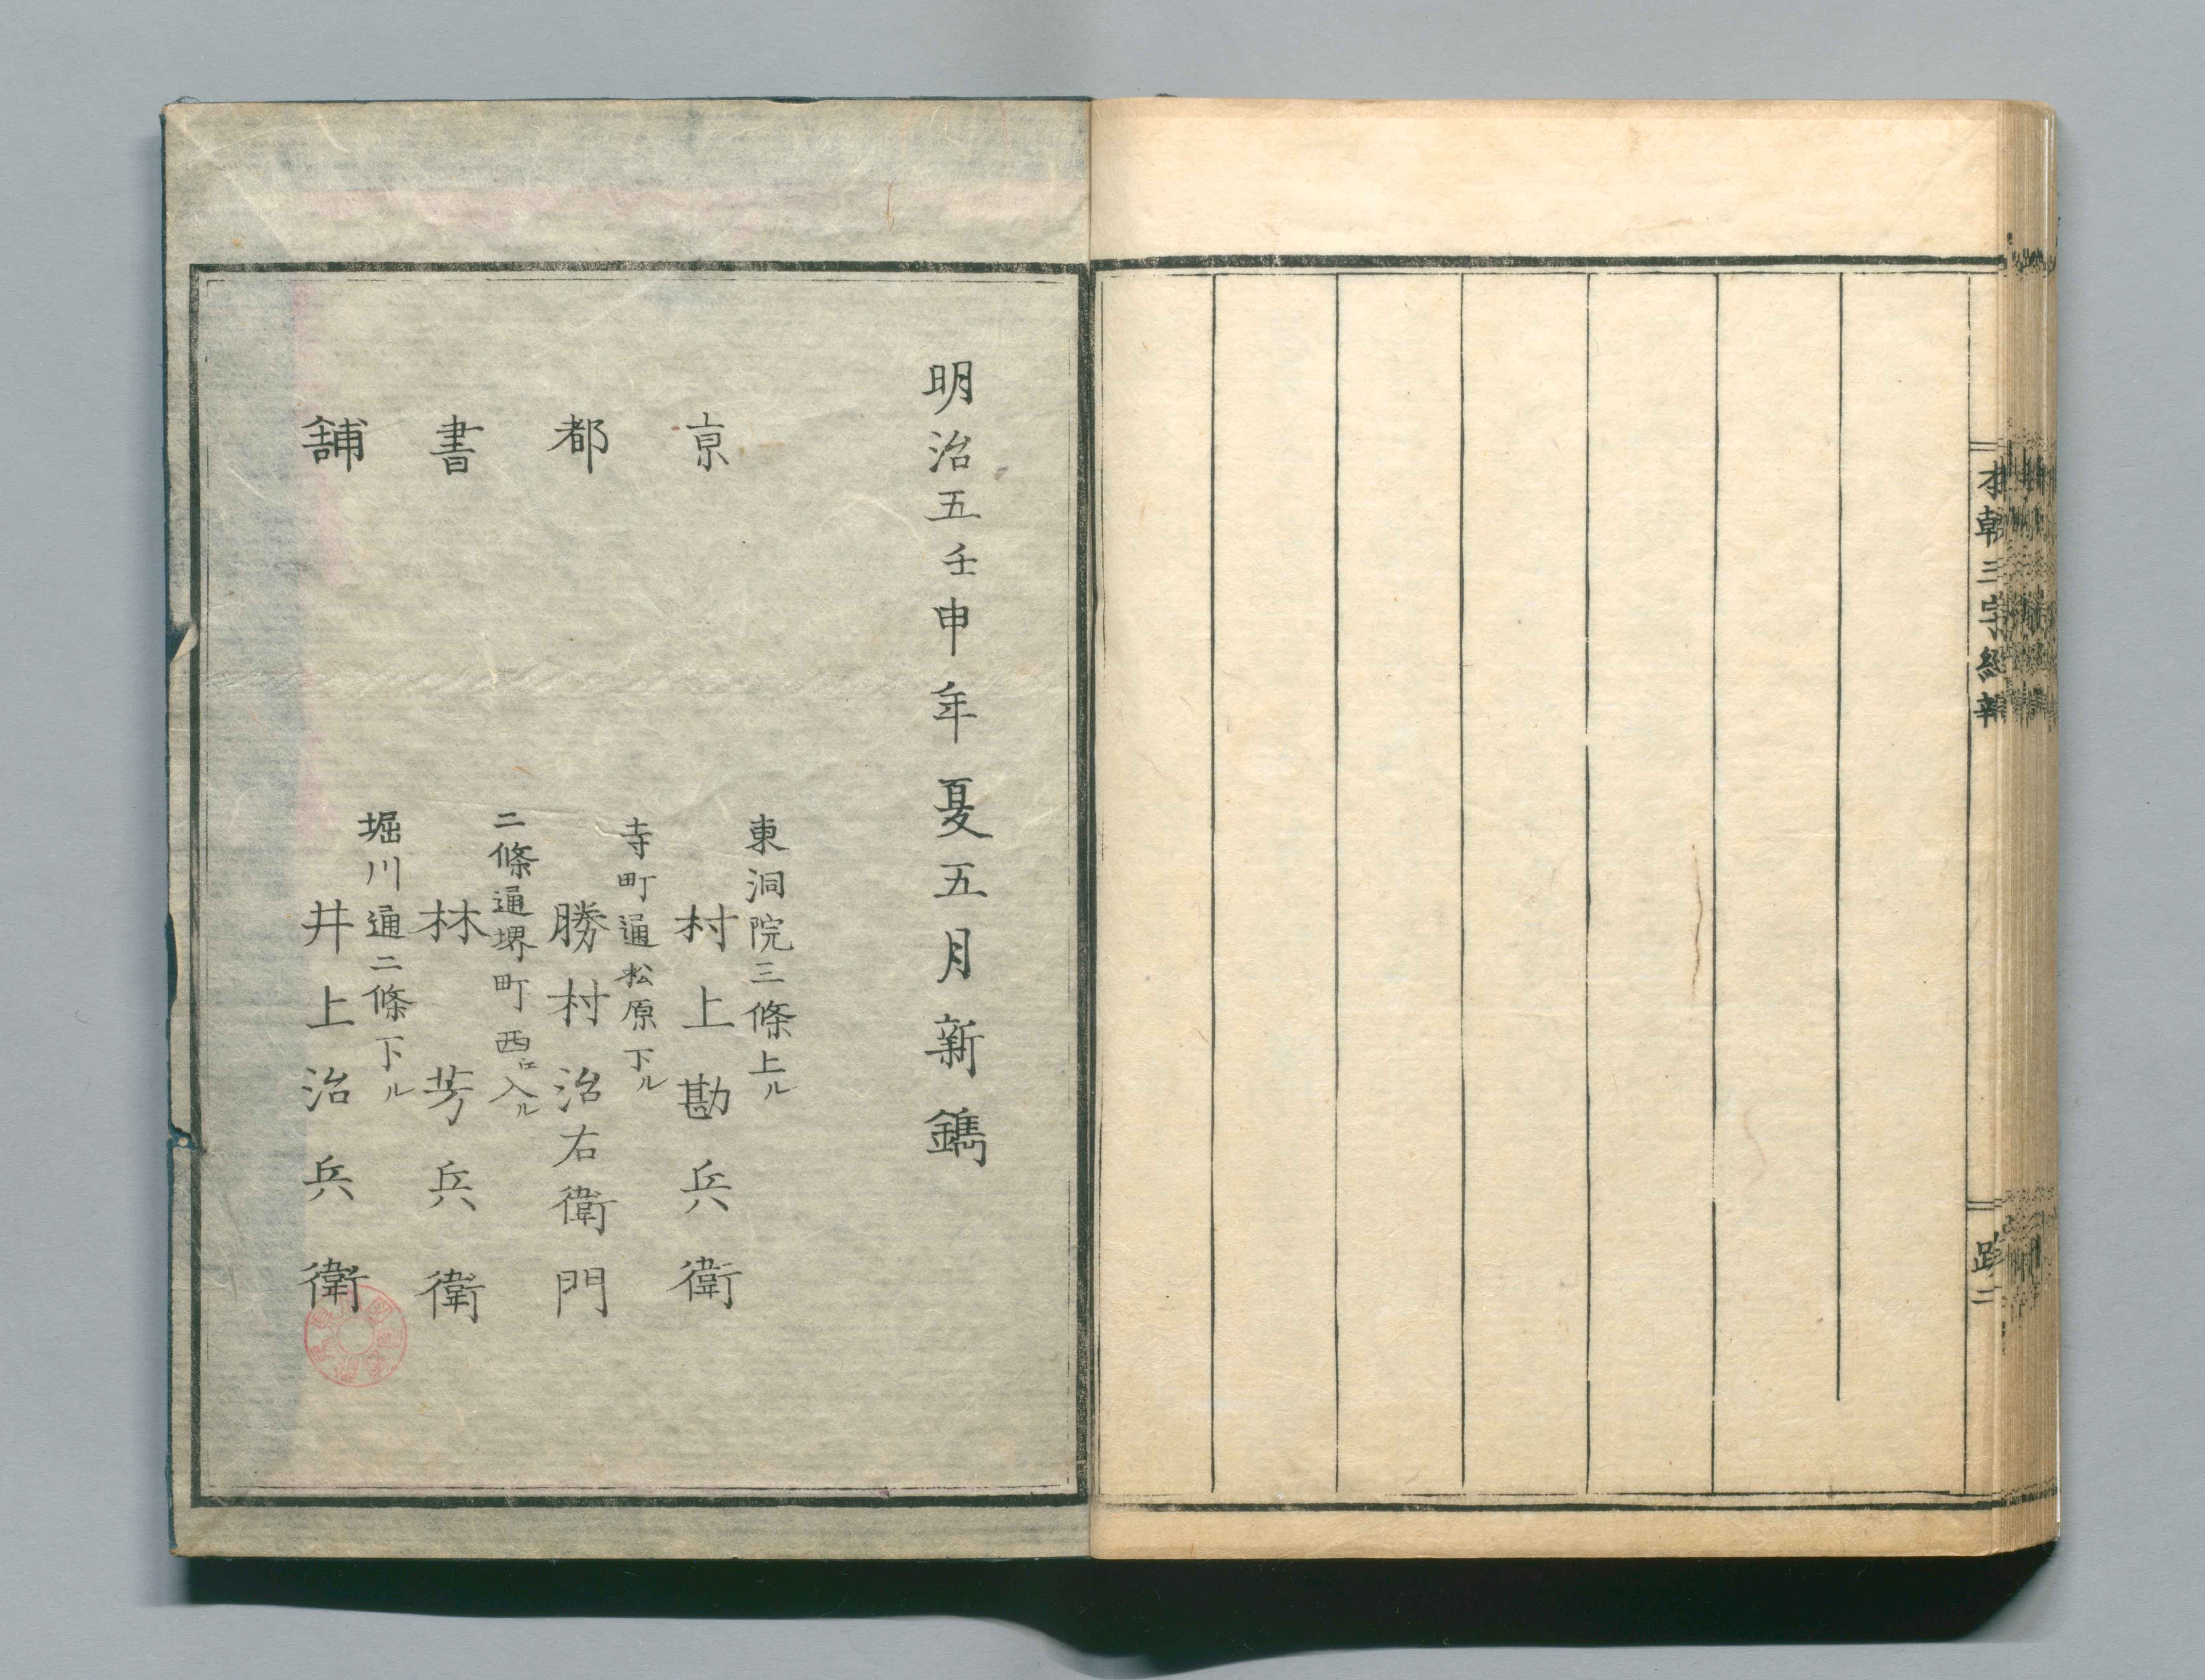 本朝三字經
跋二
明治五壬申年夏五月新鐫
京都書舖
東洞院三條上ル
村上勘兵衛
寺町通松原下ル
勝村治右衛門
二條通堺町西江入ル
林芳兵衛
堀川通二條下ル
井上治兵衛